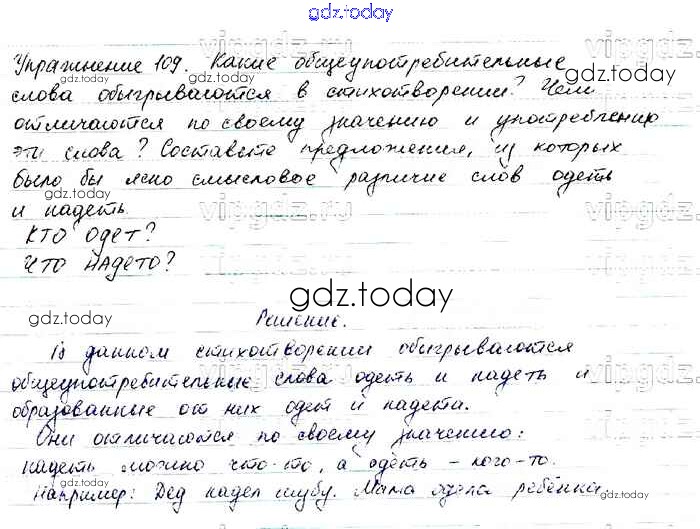 gdz.today
Упражнение 109. Какие общеупотребительные
слова обыгрываются в стихотворении? Чем
отличаются по своему значению и употреблению
эти слова? Составьте предложения, из которых
было бы ясно смысловое различие слов одеть
и надеть.
КТО ОДЕТ?
ЧТО НАДЕТО?
Решение.
В данном стихотворении обыгрываются
общеупотребительные слова одеть и надеть и
образованные от них одет и надета.
Они отличаются по своему значению:
надеть можно что-то, а одеть – кого-то.
Например: Дед надел шубу. Мама одела ребёнка.
vipgdz.ru
gdz.today